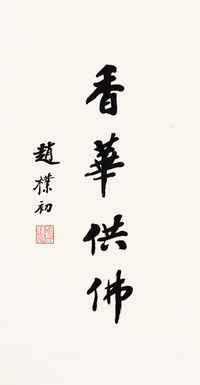 香華供佛
趙樸初